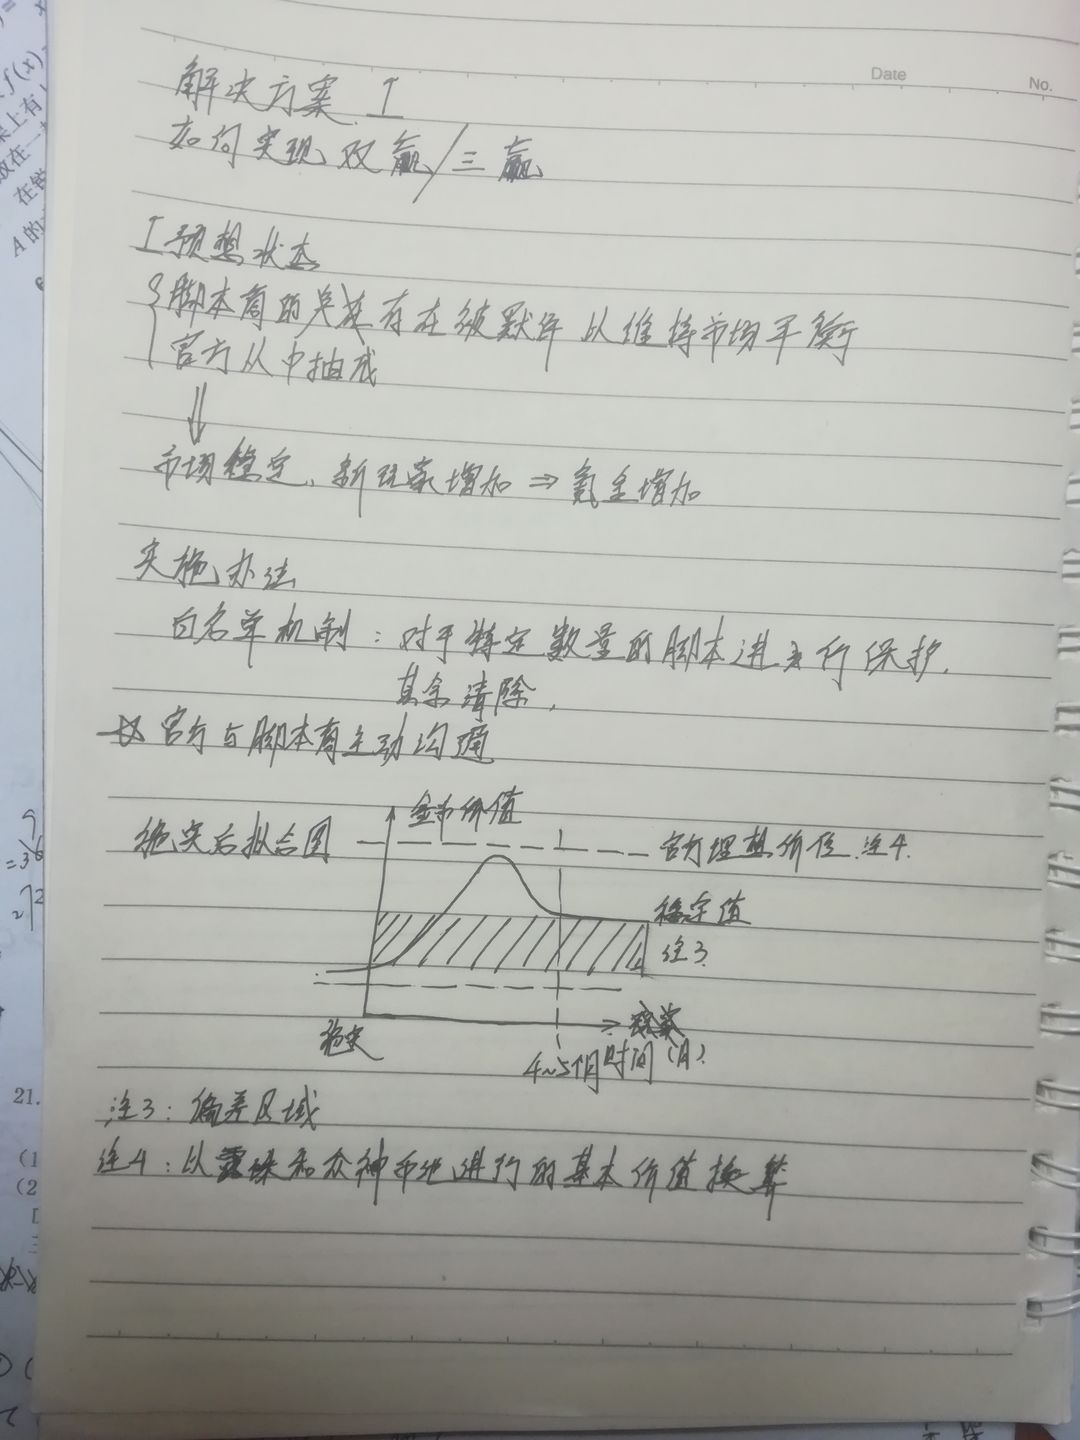 Date
No.
解决方案 I
如何实现双赢/三赢
I 预想状态
脚本商的关连存在被默许以维持市场平衡
官方从中抽成
⇓
市场稳定、新玩家增加 ⇒ 氪金增加
实施办法
白名单机制：对于特定数量的脚本进行保护.
其余清除.
☆ 官方与脚本商主动沟通
金币价值
施实后拟合图
官方理想价位.注4.
稳定值
注3.
施实
4~5个月
时间(月).
注3：偏差区域
注4：以和众神币池进行的基本价值换算
f(x)
21.